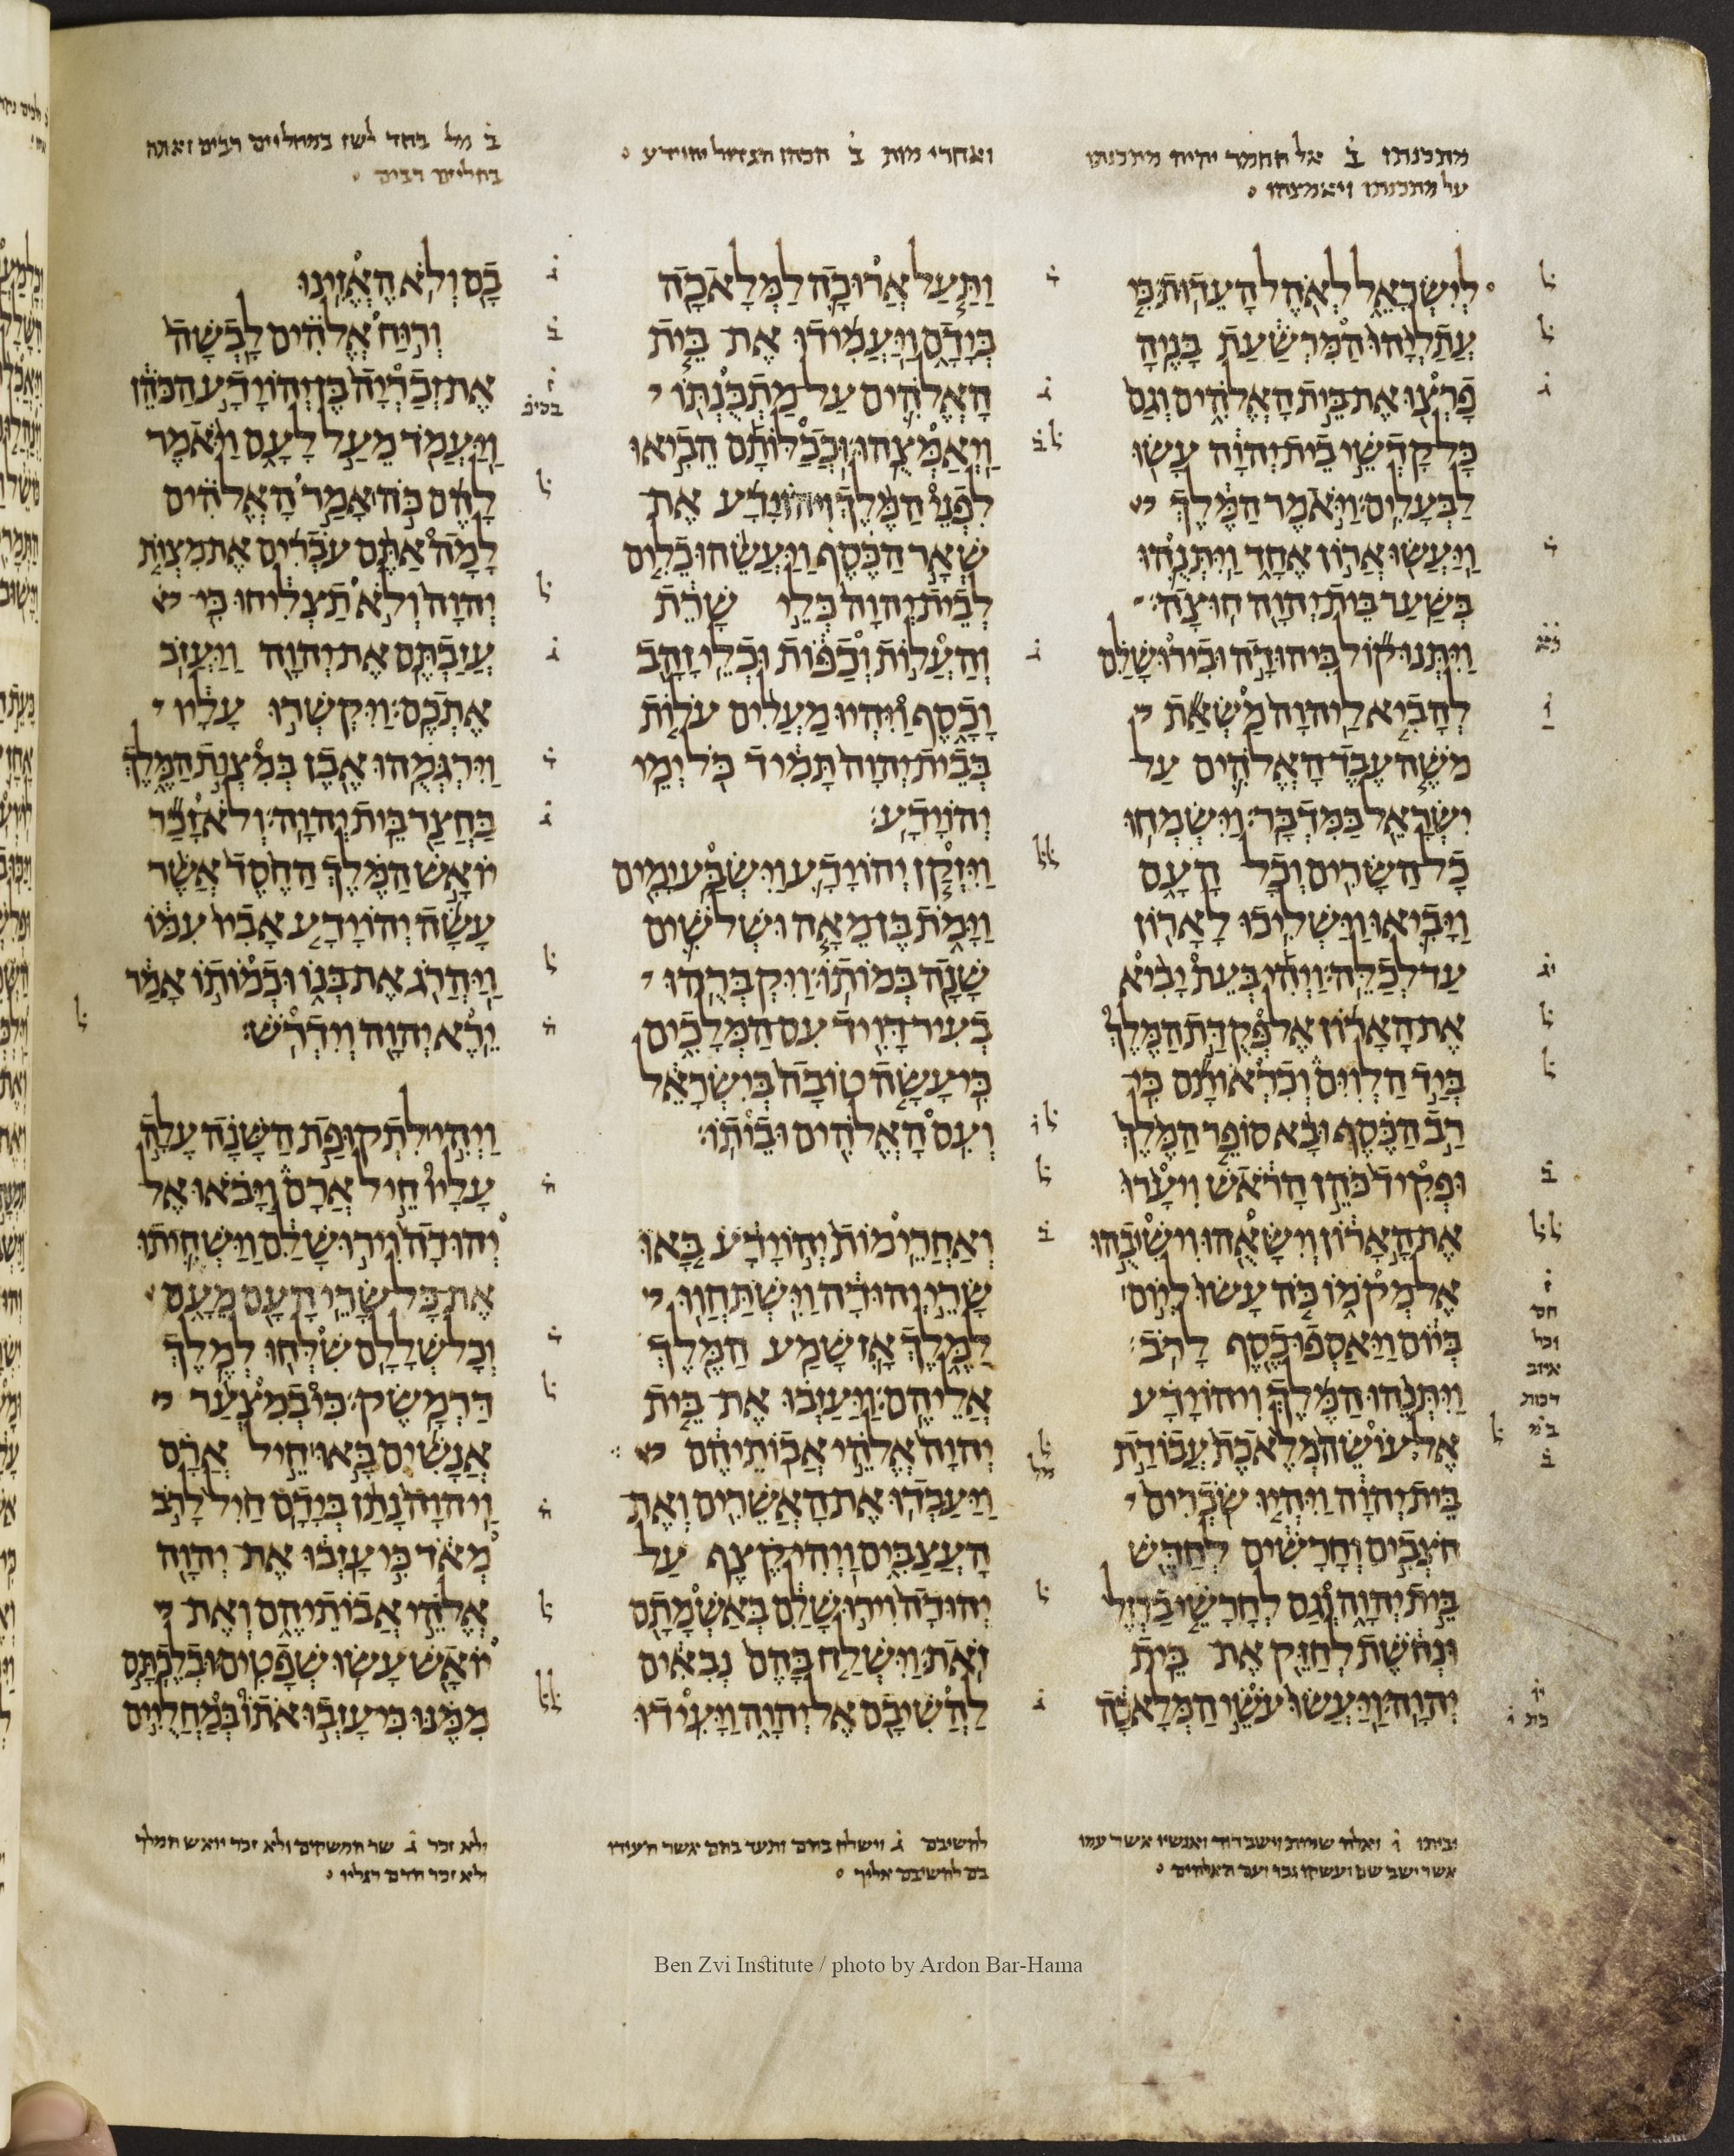 אל
יהיה מתכנתו
על מתכנתו ויאמצהו
ואחרי מות ב הכהן הגדול יהוידע
ב מל בחד לשן במחליים רבים ואתה
בחלים רבים
לְיִשְׂרָאֵל לְאֹהֶל הָעֵדוּת כִּי
עֲתַלְיָהוּ הַמִּרְשַׁעַת בָּנֶיהָ
פָרְצוּ אֶת בֵּית הָאֱלֹהִים וְגַם
כָּל קָדְשֵׁי בֵית יְהוָה עָשׂוּ
לַבְּעָלִים וַיֹּאמֶר הַמֶּלֶךְ
וַיַּעֲשׂוּ אֲרוֹן אֶחָד וַיִּתְּנֻהוּ
בְּשַׁעַר בֵּית יְהוָה חוּצָה
וַיִּתְּנוּ קוֹל בִּיהוּדָה וּבִירוּשָׁלִַם
לְהָבִיא לַיהוָה מַשְׂאַת
מֹשֶׁה עֶבֶד הָאֱלֹהִים עַל
יִשְׂרָאֵל בַּמִּדְבָּר וַיִּשְׂמְחוּ
כָל הַשָּׂרִים וְכָל הָעָם
וַיָּבִיאוּ וַיַּשְׁלִיכוּ לָאָרוֹן
עַד לְכַלֵּה וַיְהִי בְּעֵת יָבִיא
אֶת הָאָרוֹן אֶל פְּקֻדַּת הַמֶּלֶךְ
בְּיַד הַלְוִיִּם וְכִרְאוֹתָם כִּי
רַב הַכֶּסֶף וּבָא סוֹפֵר הַמֶּלֶךְ
וּפְקִיד כֹּהֵן הָרֹאשׁ וִיעָרוּ
אֶת הָאָרוֹן וְיִשָּׂאֻהוּ וִישִׁיבֻהוּ
אֶל מְקֹמוֹ כֹּה עָשׂוּ לְיוֹם
בְּיוֹם וַיַּאַסְפוּ כֶסֶף לָרֹב
וַיִּתְּנֵהוּ הַמֶּלֶךְ וִיהוֹיָדָע
אֶל עוֹשֵׂה מְלֶאכֶת עֲבוֹדַת
בֵּית יְהוָה וַיִּהְיוּ שֹׂכְרִים
חֹצְבִים וְחָרָשִׁים לְחַדֵּשׁ
בֵּית יְהוָה וְגַם לְחָרָשֵׁי בַרְזֶל
וּנְחֹשֶׁת לְחַזֵּק אֶת בֵּית
יְהוָה וַיַּעֲשׂוּ עֹשֵׂי הַמְּלָאכָה
וַתַּעַל אֲרוּכָה לַמְּלָאכָה
בְּיָדָם וַיַּעֲמִידוּ אֶת בֵּית
הָאֱלֹהִים עַל מַתְכֻּנְתּוֹ
וַיְאַמְּצֻהוּ וּכְכַלּוֹתָם הֵבִיאוּ
לִפְנֵי הַמֶּלֶךְ וִיהוֹיָדָע אֶת
שְׁאָר הַכֶּסֶף וַיַּעֲשֵׂהוּ כֵלִים
לְבֵית יְהוָה כְּלֵי שָׁרֵת
וְהַעֲלוֹת וְכַפּוֹת וּכְלֵי זָהָב
וָכָסֶף וַיִּהְיוּ מַעֲלִים עֹלוֹת
בְּבֵית יְהוָה תָּמִיד כֹּל יְמֵי
יְהוֹיָדָע
וַיִּזְקַן יְהוֹיָדָע וַיִּשְׂבַּע יָמִים
וַיָּמֹת בֶּן מֵאָה וּשְׁלֹשִׁים
שָׁנָה בְּמוֹתוֹ וַיִּקְבְּרֻהוּ
בְעִיר דָּוִיד עִם הַמְּלָכִים
כִּי עָשָׂה טוֹבָה בְּיִשְׂרָאֵל
וְעִם הָאֱלֹהִים וּבֵיתוֹ
וְאַחֲרֵי מוֹת יְהוֹיָדָע בָּאוּ
שָׂרֵי יְהוּדָה וַיִּשְׁתַּחֲווּ
לַמֶּלֶךְ אָז שָׁמַע הַמֶּלֶךְ
אֲלֵיהֶם וַיַּעַזְבוּ אֶת בֵּית
יְהוָה אֱלֹהֵי אֲבוֹתֵיהֶם
וַיַּעַבְדוּ אֶת הָאֲשֵׁרִים וְאֶת
הָעֲצַבִּים וַיְהִי קֶצֶף עַל
יְהוּדָה וִירוּשָׁלִַם בְּאַשְׁמָתָם
זֹאת וַיִּשְׁלַח בָּהֶם נְבִאִים
לַהֲשִׁיבָם אֶל יְהוָה וַיָּעִידוּ
בָם וְלֹא הֶאֱזִינוּ
וְרוּחַ אֱלֹהִים לָבְשָׁה
אֶת זְכַרְיָה בֶּן יְהוֹיָדָע הַכֹּהֵן
וַיַּעֲמֹד מֵעַל לָעָם וַיֹּאמֶר
לָהֶם כֹּה אָמַר הָאֱלֹהִים
לָמָה אַתֶּם עֹבְרִים אֶת מִצְוֹת
יְהוָה וְלֹא תַצְלִיחוּ כִּי
עֲזַבְתֶּם אֶת יְהוָה וַיַּעֲזֹב
אֶתְכֶם וַיִּקְשְׁרוּ עָלָיו
וַיִּרְגְּמֻהוּ אֶבֶן בְּמִצְוַת הַמֶּלֶךְ
בַּחֲצַר בֵּית יְהוָה וְלֹא זָכַר
יוֹאָשׁ הַמֶּלֶךְ הַחֶסֶד אֲשֶׁר
עָשָׂה יְהוֹיָדָע אָבִיו עִמּוֹ
וַיַּהֲרֹג אֶת בְּנוֹ וּכְמוֹתוֹ אָמַר
יֵרֶא יְהוָה וְיִדְרֹשׁ
וַיְהִי לִתְקוּפַת הַשָּׁנָה עָלָה
עָלָיו חֵיל אֲרָם וַיָּבֹאוּ אֶל
יְהוּדָה וִירוּשָׁלִַם וַיַּשְׁחִיתוּ
אֶת כָּל שָׂרֵי הָעָם מֵעָם
וְכָל שְׁלָלָם שִׁלְּחוּ לְמֶלֶךְ
דַּרְמָשֶׂק כִּי בְמִצְעַר
אֲנָשִׁים בָּאוּ חֵיל אֲרָם
וַיהוָה נָתַן בְּיָדָם חַיִל לָרֹב
מְאֹד כִּי עָזְבוּ אֶת יְהוָה
אֱלֹהֵי אֲבוֹתֵיהֶם וְאֶת
יוֹאָשׁ עָשׂוּ שְׁפָטִים וּבְלֶכְתָּם
מִמֶּנּוּ כִּי עָזְבוּ אֹתוֹ בְּמַחֲלֻיִים
וביתו ו ואלה שמות וישב דוד ואנשיו אשר עמו
אשר ישב שם ועשקו גבר ועם האלהים
להשיבם ג וישלח בהם ותעד בהם אשר העידו
בם להשיבם אליך
ולא זכר ג שר המשקים ולא זכר יואש המלך
ולא זכר הדם רגליו
Ben Zvi Institute / photo by Ardon Bar-Hama